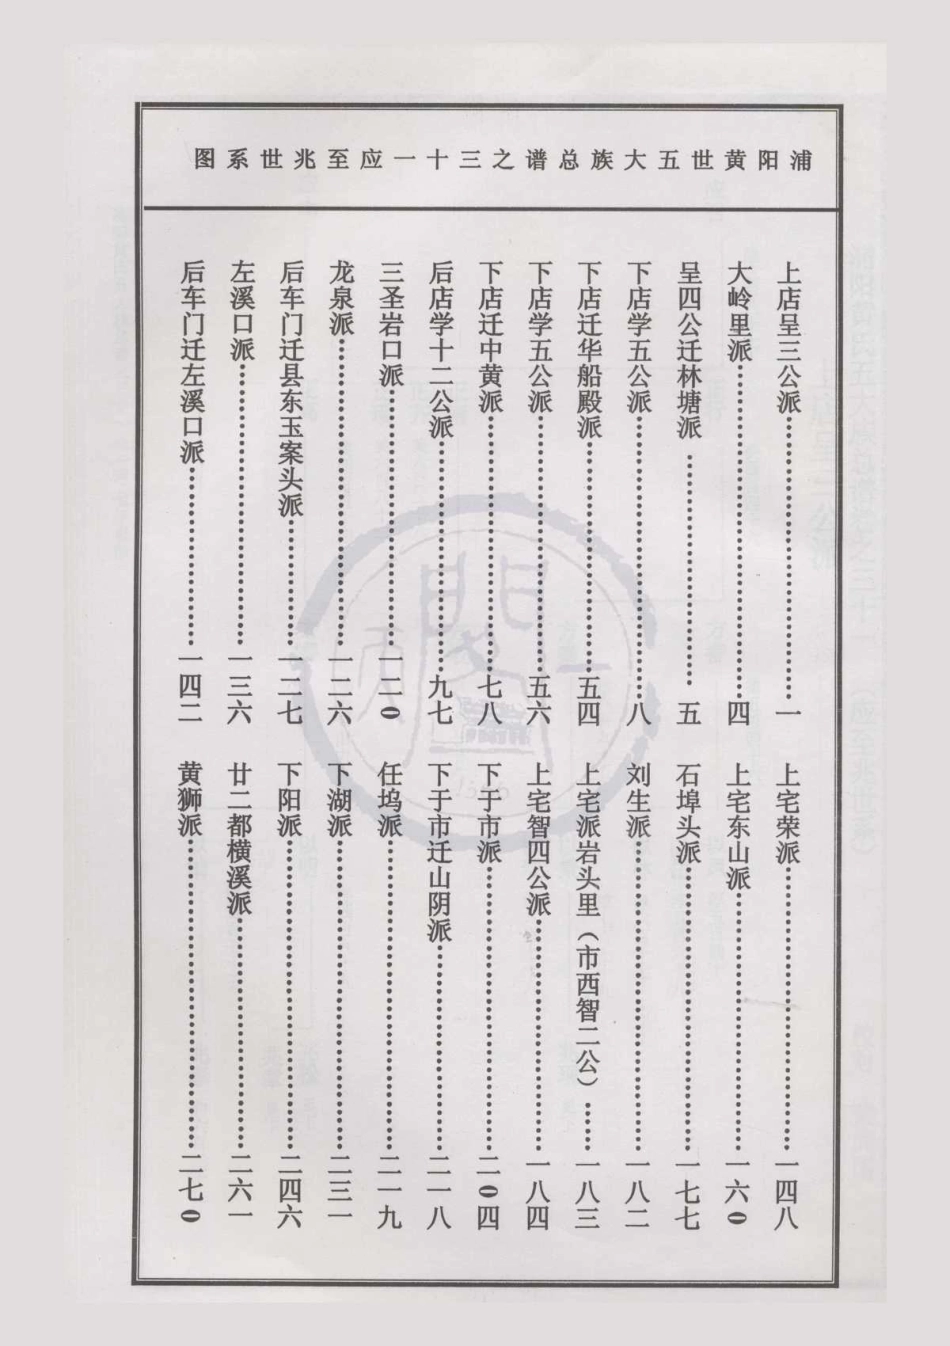 浦阳黄世五大族总谱之三十一应至兆世系图
上店呈三公派……一
大岭里派……四
呈四公迁林塘派……五
下店学五公派……八
下店迁华船殿派……五四
下店学五公派……五六
下店迁中黄派……七八
后店学十二公派……九七
三圣岩口派……一二0
龙泉派……一二六
后车门迁县东玉案头派……一二七
左溪口派……一三六
后车门迁左溪口派……一四二
上宅荣派……一四八
上宅东山派……一六0
石埠头派……一七七
刘生派……一八二
上宅派岩头里（市西智二公）……一八三
上宅智四公派……一八四
下于市派……二0四
下于市迁山阴派……二一八
任坞派……二一九
下湖派……二三一
下阳派……二四六
廿二都横溪派……二六一
黄狮派……二七0